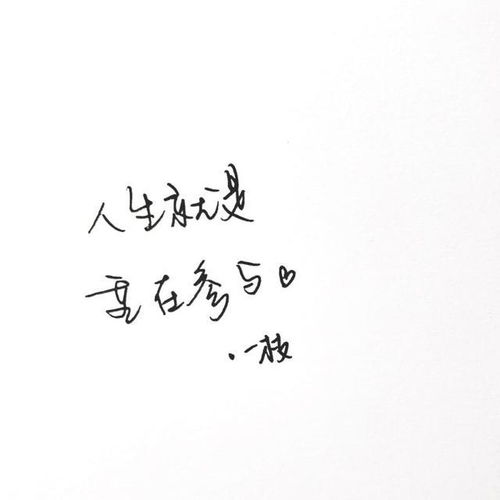 人生就是
重在参与♡
.一枝